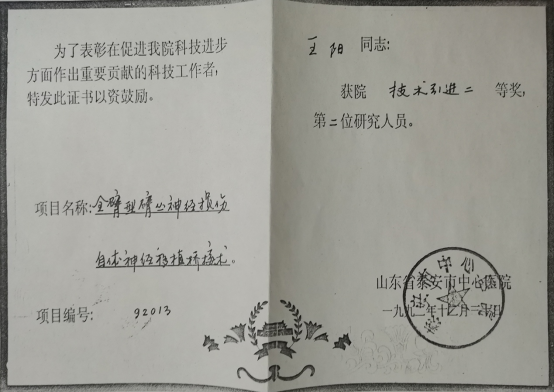 为了表彰在促进我院科技进步
方面作出重要贡献的科技工作者，
特发此证书以资鼓励。
项目名称：全臂型臂丛神经损伤
自体神经移植桥接术。
项目编号：92013
王阳 同志：
获院 技术引进二 等奖，
第二位研究人员。
山东省泰安市中心医院
一九九二年十二月三十日